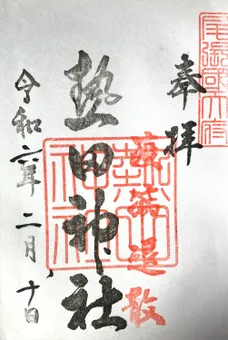 尾張國大宮
奉拝
疫病退散
熱田神社
令和六年二月十日